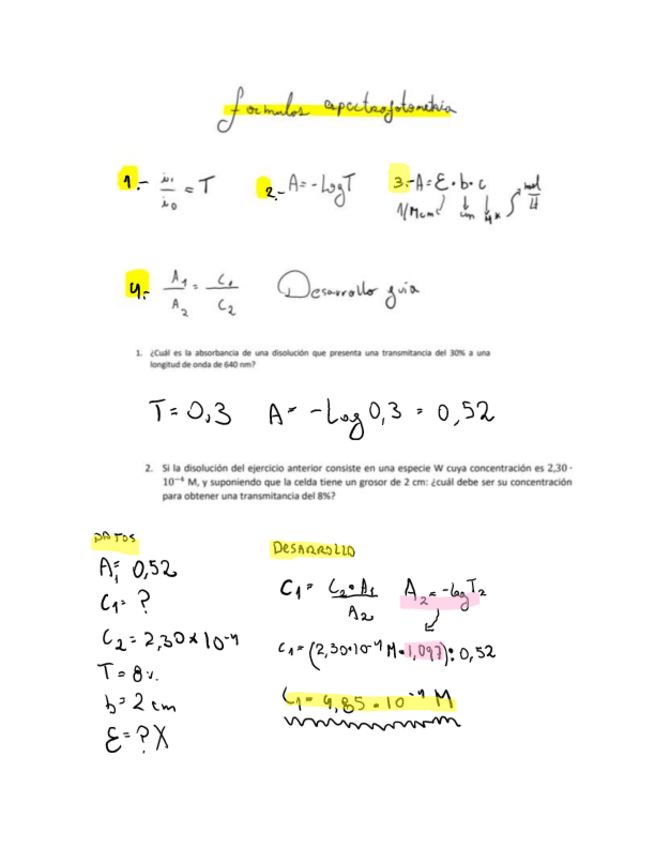 formulas espectrofotometria
1.- i₁/i₀ = T 2.- A = -Log T 3.- A = Ɛ · b · c
1/Mcm cm M mol/lt
4.- A₁/A₂ = C₁/C₂ Desarrollo guia
1. ¿Cuál es la absorbancia de una disolución que presenta una transmitancia del 30% a una
longitud de onda de 640 nm?
T = 0,3 A = -Log 0,3 = 0,52
2. Si la disolución del ejercicio anterior consiste en una especie W cuya concentración es 2,30 ·
10⁻⁴ M, y suponiendo que la celda tiene un grosor de 2 cm: ¿cuál debe ser su concentración
para obtener una transmitancia del 8%?
DATOS
A₁ = 0,52
C₁ = ?
C₂ = 2,30 x 10⁻⁴
T = 8%
b = 2 cm
Ɛ = ? X
DESARROLLO
C₁ = C₂ · A₁ / A₂ A₂ = -log T₂
C₁ = (2,30 · 10⁻⁴ M · 1,097) : 0,52
C₁ = 4,85 · 10⁻⁴ M